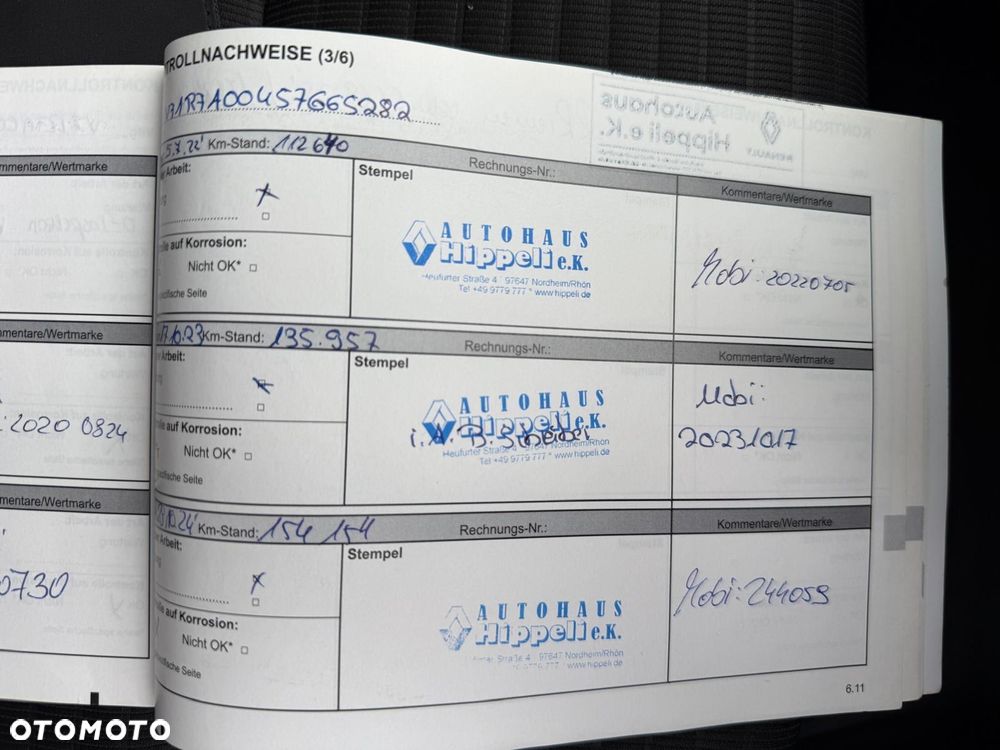 TROLLNACHWEISE (3/6)
Km-Stand: 112640
Rechnungs-Nr.:
Kommentare/Wertmarke
Arbeit:
Stempel
AUTOHAUS
Hippeli e.K.
Heufurter Straße 4 · 97647 Nordheim/Rhön
Tel +49 9779 777 * www.hippeli.de
Mobi: 20220705
auf Korrosion:
Nicht OK*
Seite
17.10.23 Km-Stand: 135.957
Rechnungs-Nr.:
Kommentare/Wertmarke
Arbeit:
Stempel
AUTOHAUS
Hippeli e.K.
Heufurter Straße 4 · 97647 Nordheim/Rhön
Tel +49 9779 777 * www.hippeli.de
i.A.
Mobi:
20231017
auf Korrosion:
Nicht OK*
spezifische Seite
10.24 Km-Stand: 154 154
Rechnungs-Nr.:
Kommentare/Wertmarke
Arbeit:
Stempel
AUTOHAUS
Hippeli e.K.
Straße 4 · 97647 Nordheim/Rhön
9779 777 * www.hippeli.de
Mobi: 244059
auf Korrosion:
Nicht OK*
spezifische Seite
6.11
mmentare/Wertmarke
mmentare/Wertmarke
: 2020 0824
mmentare/Wertmarke
0730
OTOMOTO